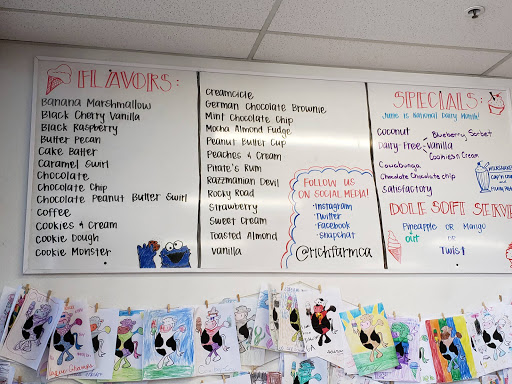 FLAVORS:
Banana Marshmallow
Black Cherry Vanilla
Black Raspberry
Butter Pecan
Cake Batter
Caramel Swirl
Chocolate
Chocolate Chip
Chocolate Peanut Butter Swirl
Coffee
Cookies & Cream
Cookie Dough
Cookie Monster
Creamcicle
German Chocolate Brownie
Mint Chocolate Chip
Mocha Almond Fudge
Peanut Butter Cup
Peaches & Cream
Pirate's Rum
Razzmanian Devil
Rocky Road
Strawberry
Sweet Cream
Toasted Almond
Vanilla
FOLLOW US
ON SOCIAL MEDIA!
·Instagram
·Twitter
·Facebook
·Snapchat
@richfarmca
SPECIALS:
June is National Dairy Month!
Coconut - Blueberry Sorbet
Dairy Free - Vanilla
Cookies n Cream
Cowabunga
Chocolate Chocolate Chip
Satisfactory
DOLE SOFT SERVE
Pineapple OR Mango
or
Twist